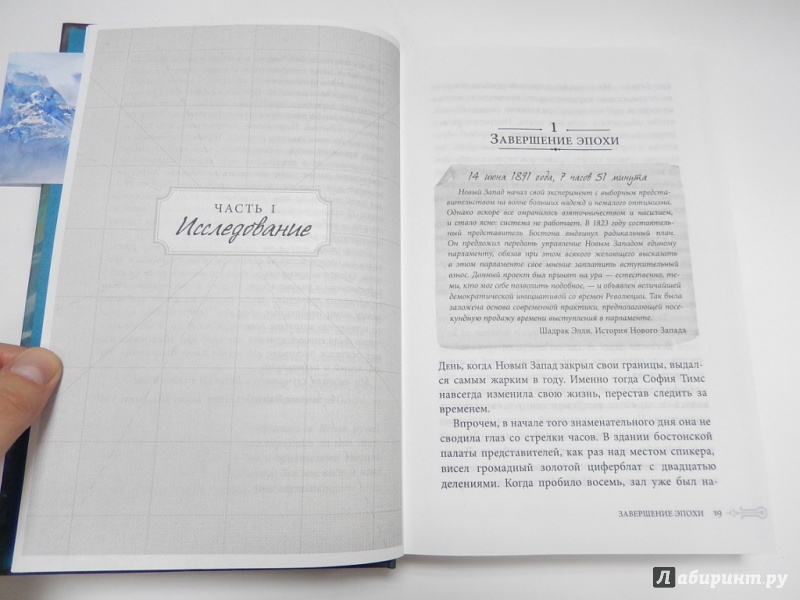 ЧАСТЬ I
Исследование
1
Завершение эпохи
14 июня 1891 года, 7 часов 51 минута
Новый Запад начал свой эксперимент с выборным предста-
вительством на волне больших надежд и немалого оптимизма.
Однако вскоре все омрачилось взяточничеством и насилием,
и стало ясно: система не работает. В 1823 году состоятель-
ный представитель Бостона выдвинул радикальный план.
Он предложил передать управление Новым Западом единому
парламенту, обязав при этом всякого желающего высказать
в этом парламенте свое мнение заплатить вступительный
взнос. Данный проект был принят на ура — естественно, те-
ми, кто мог себе позволить подобное, — и объявлен величайшей
демократической инициативой со времен Революции. Так была
заложена основа современной практики, предполагающей посе-
кундную продажу времени выступления в парламенте.
Шадрак Элли. История Нового Запада
День, когда Новый Запад закрыл свои границы, выдал-
ся самым жарким в году. Именно тогда София Тимс
навсегда изменила свою жизнь, перестав следить за
временем.
Впрочем, в начале того знаменательного дня она не
сводила глаз со стрелки часов. В здании бостонской
палаты представителей, как раз над местом спикера,
висел громадный золотой циферблат с двадцатью
делениями. Когда пробило восемь, зал уже был на-
ЗАВЕРШЕНИЕ ЭПОХИ 19
Лабиринт.ру